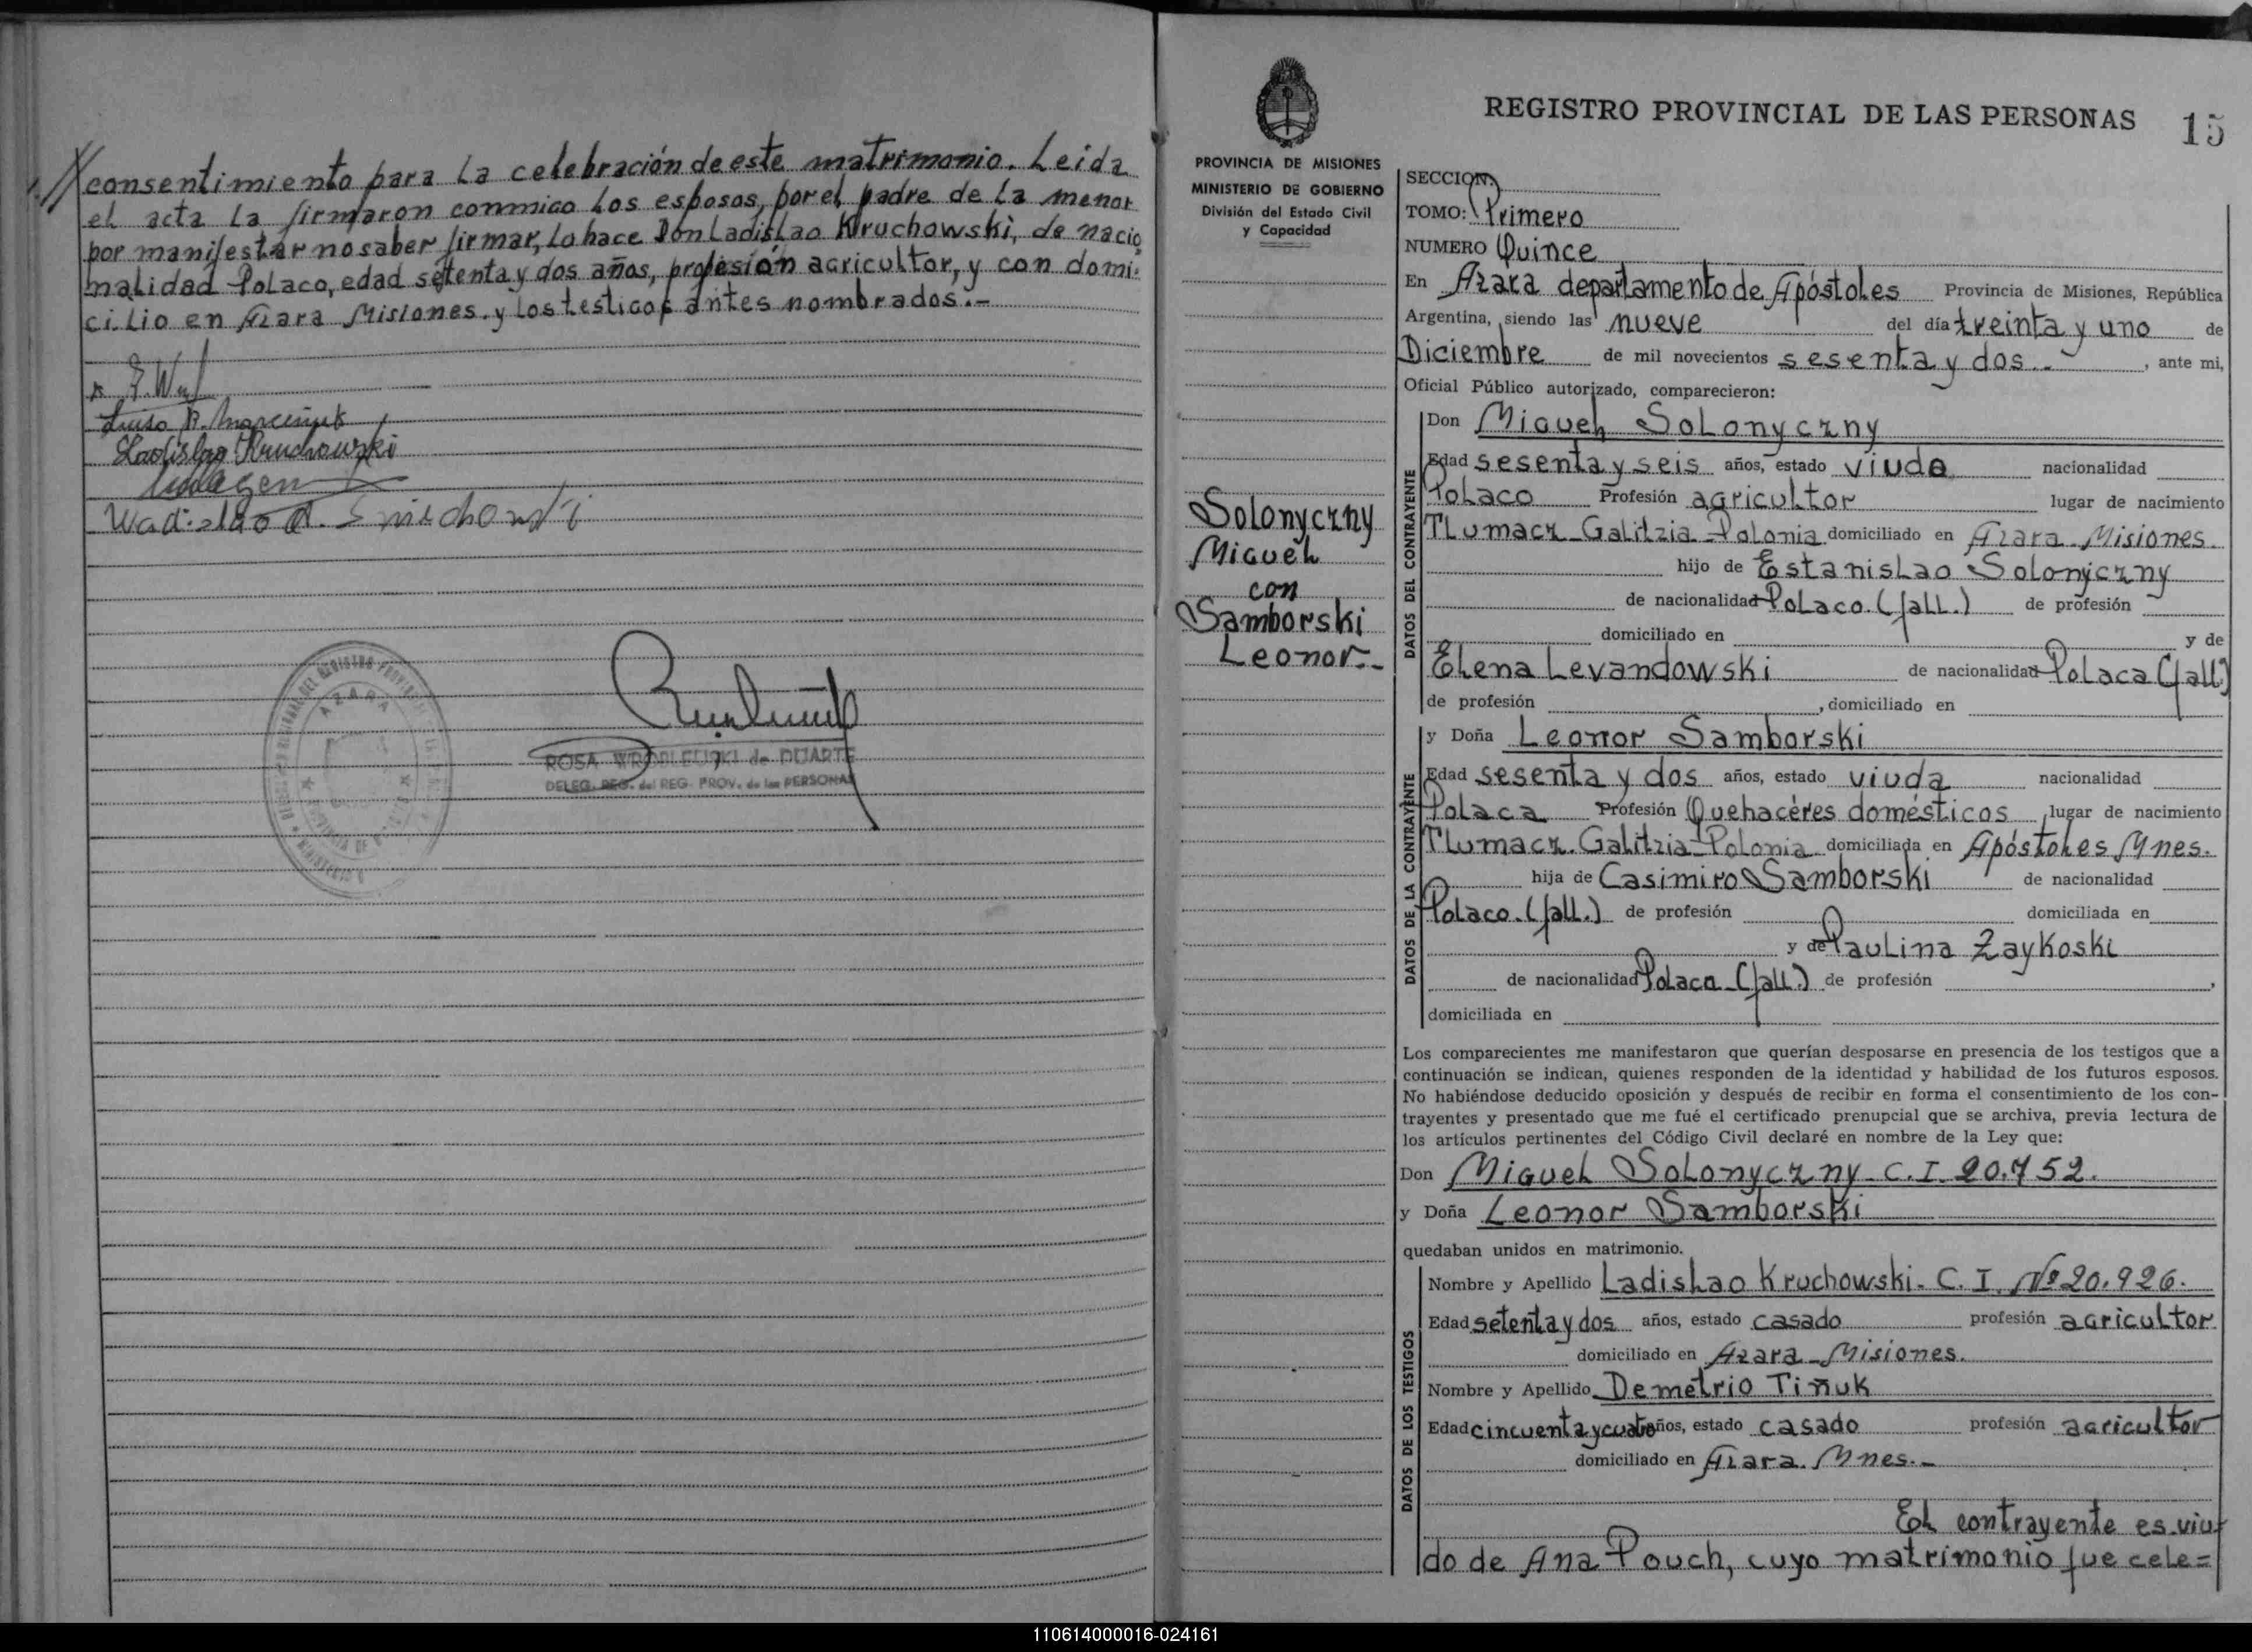 consentimiento para la celebración de este matrimonio. Leida
el acta la firmaron conmigo los esposos, por el padre de la menor
por manifestar no saber firmar, lo hace Don Ladislao Kruchowski, de nacio
nalidad Polaco, edad setenta y dos años, profesión agricultor, y con domi-
cilio en Azara Misiones. y los testigos antes nombrados.-
Ladislao Kruchowski
ROSA WROBLEUSKI de DUARTE
DELEG. REG. del REG. PROV. de las PERSONAS
AZARA
REGISTRO PROVINCIAL DE LAS PERSONAS 15
PROVINCIA DE MISIONES
MINISTERIO DE GOBIERNO
División del Estado Civil
y Capacidad
Solonyczny
Miguel
con
Samborski
Leonor.-
SECCION:
TOMO: Primero
NUMERO Quince
En Azara departamento de Apóstoles Provincia de Misiones, República
Argentina, siendo las nueve del día treinta y uno de
Diciembre de mil novecientos sesenta y dos.- , ante mi,
Oficial Público autorizado, comparecieron:
DATOS DEL CONTRAYENTE
Don Miguel Solonyczny
Edad sesenta y seis años, estado viudo nacionalidad
Polaco Profesión agricultor lugar de nacimiento
Tlumacz-Galitzia-Polonia domiciliado en Azara-Misiones.
hijo de Estanislao Solonyczny
de nacionalidad Polaco.(fall.) de profesión
domiciliado en y de
Elena Levandowski de nacionalidad Polaca (fall.)
de profesión , domiciliado en
DATOS DE LA CONTRAYENTE
y Doña Leonor Samborski
Edad sesenta y dos años, estado viuda nacionalidad
Polaca Profesión Quehacéres domésticos lugar de nacimiento
Tlumacz.Galitzia-Polonia domiciliada en Apóstoles Mnes.
hija de Casimiro Samborski de nacionalidad
Polaco.(fall.) de profesión domiciliada en
y de Paulina Zaykoski
de nacionalidad Polaca-(fall.) de profesión ,
domiciliada en
Los comparecientes me manifestaron que querían desposarse en presencia de los testigos que a
continuación se indican, quienes responden de la identidad y habilidad de los futuros esposos.
No habiéndose deducido oposición y después de recibir en forma el consentimiento de los con-
trayentes y presentado que me fué el certificado prenupcial que se archiva, previa lectura de
los artículos pertinentes del Código Civil declaré en nombre de la Ley que:
Don Miguel Solonyczny-C.I. 20.752.
y Doña Leonor Samborski
quedaban unidos en matrimonio.
DATOS DE LOS TESTIGOS
Nombre y Apellido Ladislao Kruchowski-C.I. Nº 20.926.
Edad setenta y dos años, estado casado profesión agricultor
domiciliado en Azara-Misiones.
Nombre y Apellido Demetrio Tiñuk
Edad cincuenta y cuatro años, estado casado profesión agricultor
domiciliado en Azara. Mnes.-
El contrayente es viu-
do de Ana Pouch, cuyo matrimonio fue cele=
110614000016-024161